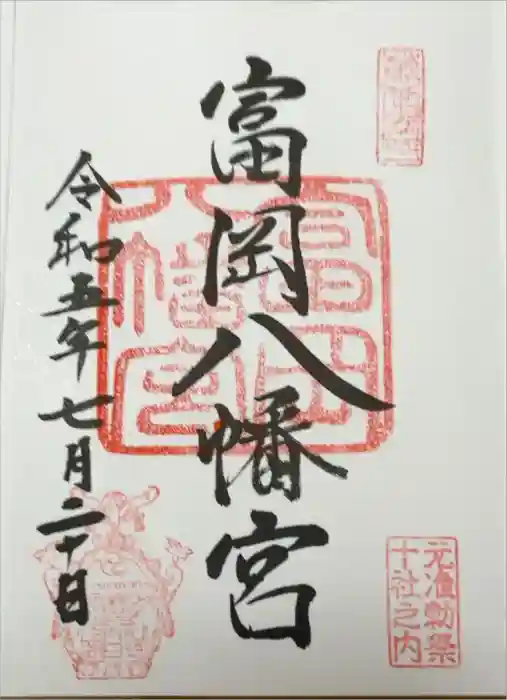 富岡八幡宮
令和五年七月二十日
富岡八幡宮
元准勅祭
十社之内